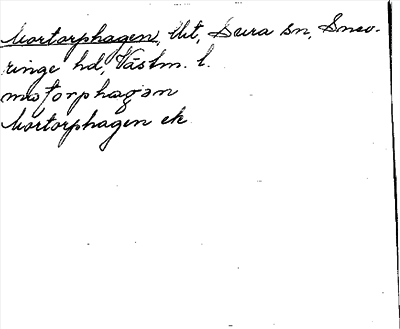 Mortorphagen, Utt, Sura sn, Snev-
ringe hd, Västm. l.
motorphagən
Mortorphagen ek